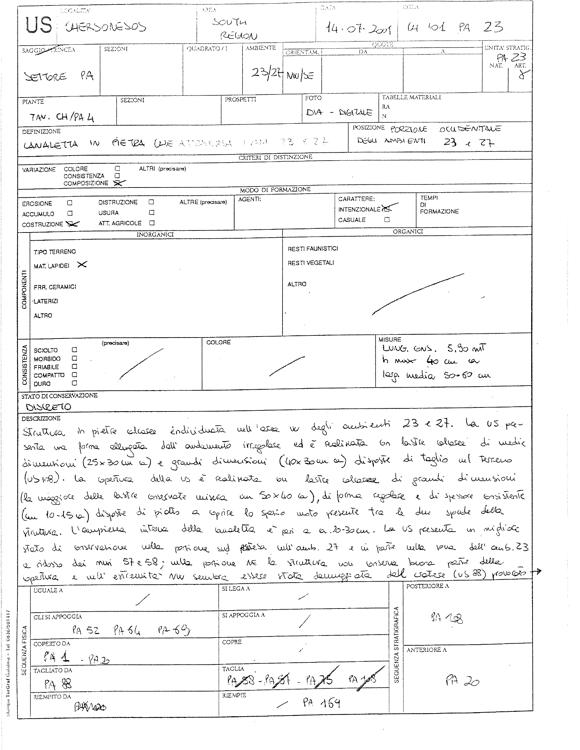 US
LOCALITA' CHERSONESOS
AREA SOUTH REGION
DATA 14-07-2001
SIGLA CH '01 PA 23
SAGGIO/TRINCEA SETTORE PA
SEZIONI
QUADRATO/I
AMBIENTE 23/27
ORIENTAM. NW/SE
QUOTE
DA
A
UNITA' STRATIG. PA 23
NAT. ART.
PIANTE TAV. CH/PA 4
SEZIONI
PROSPETTI
FOTO DIA - DIGITALE
TABELLE MATERIALI
RA
N
DEFINIZIONE
CANALETTA IN PIETRA CHE 23 E 27
POSIZIONE PORZIONE OCCIDENTALE
DEGLI AMBIENTI 23 e 27
CRITERI DI DISTINZIONE
VARIAZIONE COLORE ☐ ALTRI (precisare)
CONSISTENZA ☐
COMPOSIZIONE ☒
MODO DI FORMAZIONE
EROSIONE ☐ DISTRUZIONE ☐ ALTRE (precisare)
ACCUMULO ☐ USURA ☐
COSTRUZIONE ☒ ATT. AGRICOLE ☐
AGENTI:
CARATTERE:
INTENZIONALE ☒
CASUALE ☐
TEMPI
DI
FORMAZIONE
COMPONENTI
INORGANICI
TIPO TERRENO
MAT. LAPIDEI X
FRR. CERAMICI
LATERIZI
ALTRO
ORGANICI
RESTI FAUNISTICI
RESTI VEGETALI
ALTRO
CONSISTENZA
SCIOLTO ☐ (precisare)
MORBIDO ☐
FRIABILE ☐
COMPATTO ☐
DURO ☐
COLORE
MISURE
LUNG. CONS. 5,90 MT
h max 40 cm ca
larg media 50-60 cm
STATO DI CONSERVAZIONE
DISCRETO
DESCRIZIONE
Struttura in pietre calcaree individuata nell'area W degli ambienti 23 e 27. La US pre-
senta una forma allungata dall'andamento irregolare ed è realizzata con lastre calcaree di medie
dimensioni (25x30 cm ca) e grandi dimensioni (40x30 cm ca) disposte di taglio nel terreno
(US 168). La copertura della US è realizzata con lastre calcaree di grandi dimensioni
(la maggiore delle lastre conservate misura cm 50x40 ca), di forma regolare e di spessore consistente
(cm 10-15 ca) disposte di piatto a coprire lo spazio vuoto presente tra le due sponde della
struttura. L'ampiezza interna della canaletta è pari a ca. 20-30 cm. La US presenta un migliore
stato di conservazione nella porzione sud nell'amb. 27 e in parte nella zona dell'amb. 23
a ridosso dei muri 57 e 58; nella porzione NE la struttura non conserva buona parte della
copertura e nell'estremità NW sembra essere stata danneggiata dal cratere (US 88) provocato →
SEQUENZA FISICA
UGUALE A
SI LEGA A
GLI SI APPOGGIA
PA 52 PA 64 PA 69
SI APPOGGIA A
COPERTO DA
PA 1 - PA 20
COPRE
TAGLIATO DA
PA 88
TAGLIA
RIEMPITO DA
RIEMPIE
PA 169
SEQUENZA STRATIGRAFICA
POSTERIORE A
PA 168
ANTERIORE A
PA 20